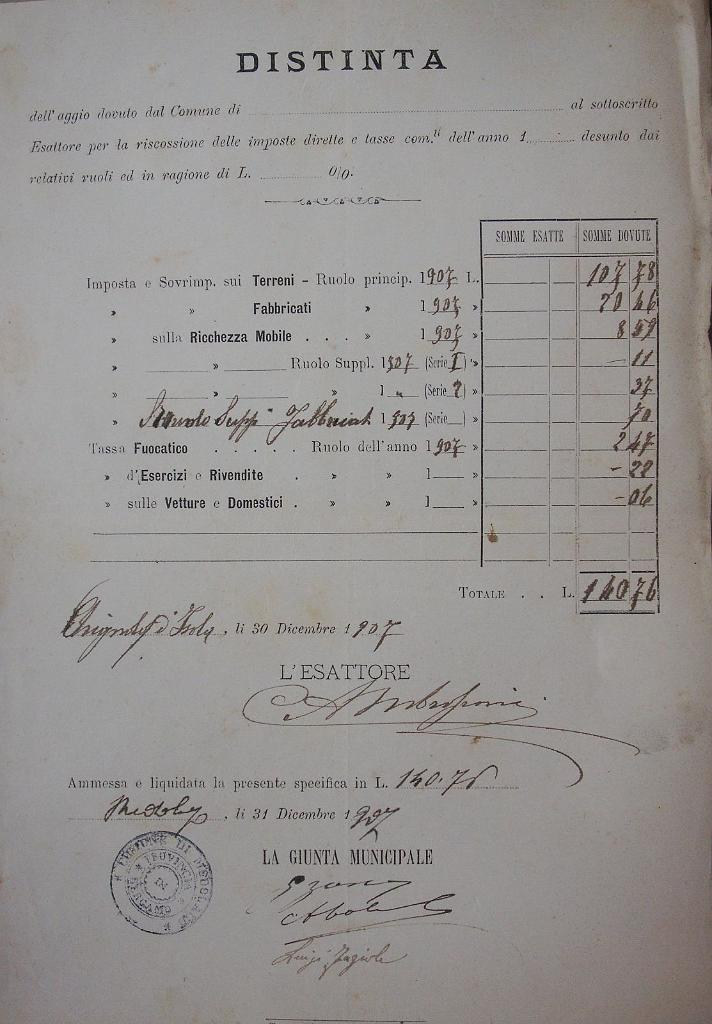 DISTINTA
dell'aggio dovuto dal Comune di al sottoscritto
Esattore per la riscossione delle imposte dirette e tasse com.li dell'anno 1 desunto dai
relativi ruoli ed in ragione di L. 0/0.
SOMME ESATTE SOMME DOVUTE
Imposta e Sovrimp. sui Terreni - Ruolo princip. 1907 L. 107 78
» » Fabbricati » 1907 » 20 46
» sulla Ricchezza Mobile . . . » 1907 » 8 59
» » Ruolo Suppl. 1907 (Serie I) » - 11
» » » 1 " (Serie 2) » 37
» Ruolo Suppl Fabbricati 1907 (Serie ) » 70
Tassa Fuocatico . . . . . Ruolo dell'anno 1907 » 2 47
» d'Esercizi e Rivendite . » » 1 » - 22
» sulle Vetture e Domestici . » » 1 » - 06
TOTALE . . L. 140 76
d'Isola, li 30 Dicembre 1907
L'ESATTORE
Ammessa e liquidata la presente specifica in L. 140.76
, li 31 Dicembre 1907
LA GIUNTA MUNICIPALE
Luigi